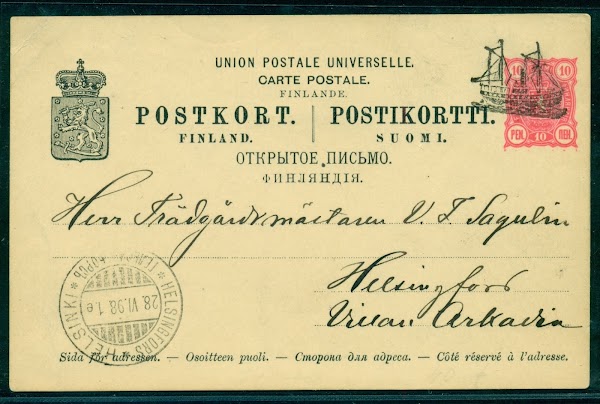 UNION POSTALE UNIVERSELLE.
CARTE POSTALE.
FINLANDE.
POSTKORT. | POSTIKORTTI.
FINLAND. SUOMI.
ОТКРЫТОЕ ПИСЬМО.
ФИНЛЯНДІЯ.
10 10
PEN. 10 ПЕН.
Herr Trädgårdsmästaren V. F. Sagulin
Helsingfors
Villan Arkadia
HELSINGFORS
HELSINKI
28. VI. 98. 1.e
Sida för adressen. — Osoitteen puoli. — Сторона для адреса. — Côté réservé à l'adresse.